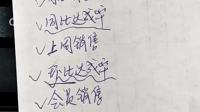 ✓ 同比达成率
✓ 上周销售
✓ 环比达成率
✓ 会员销售